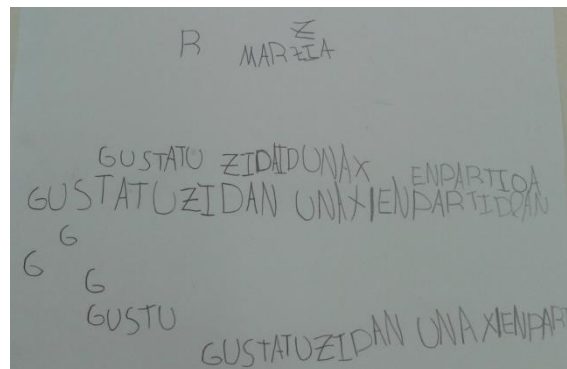 R Z
MARZIA
GUSTATU ZIDAIDUNAX ENPARTIOA
GUSTATUZIDAN UNAXIENPARTIDAN
G
G
G
GUSTU
GUSTATUZIDAN UNAXIENPAR